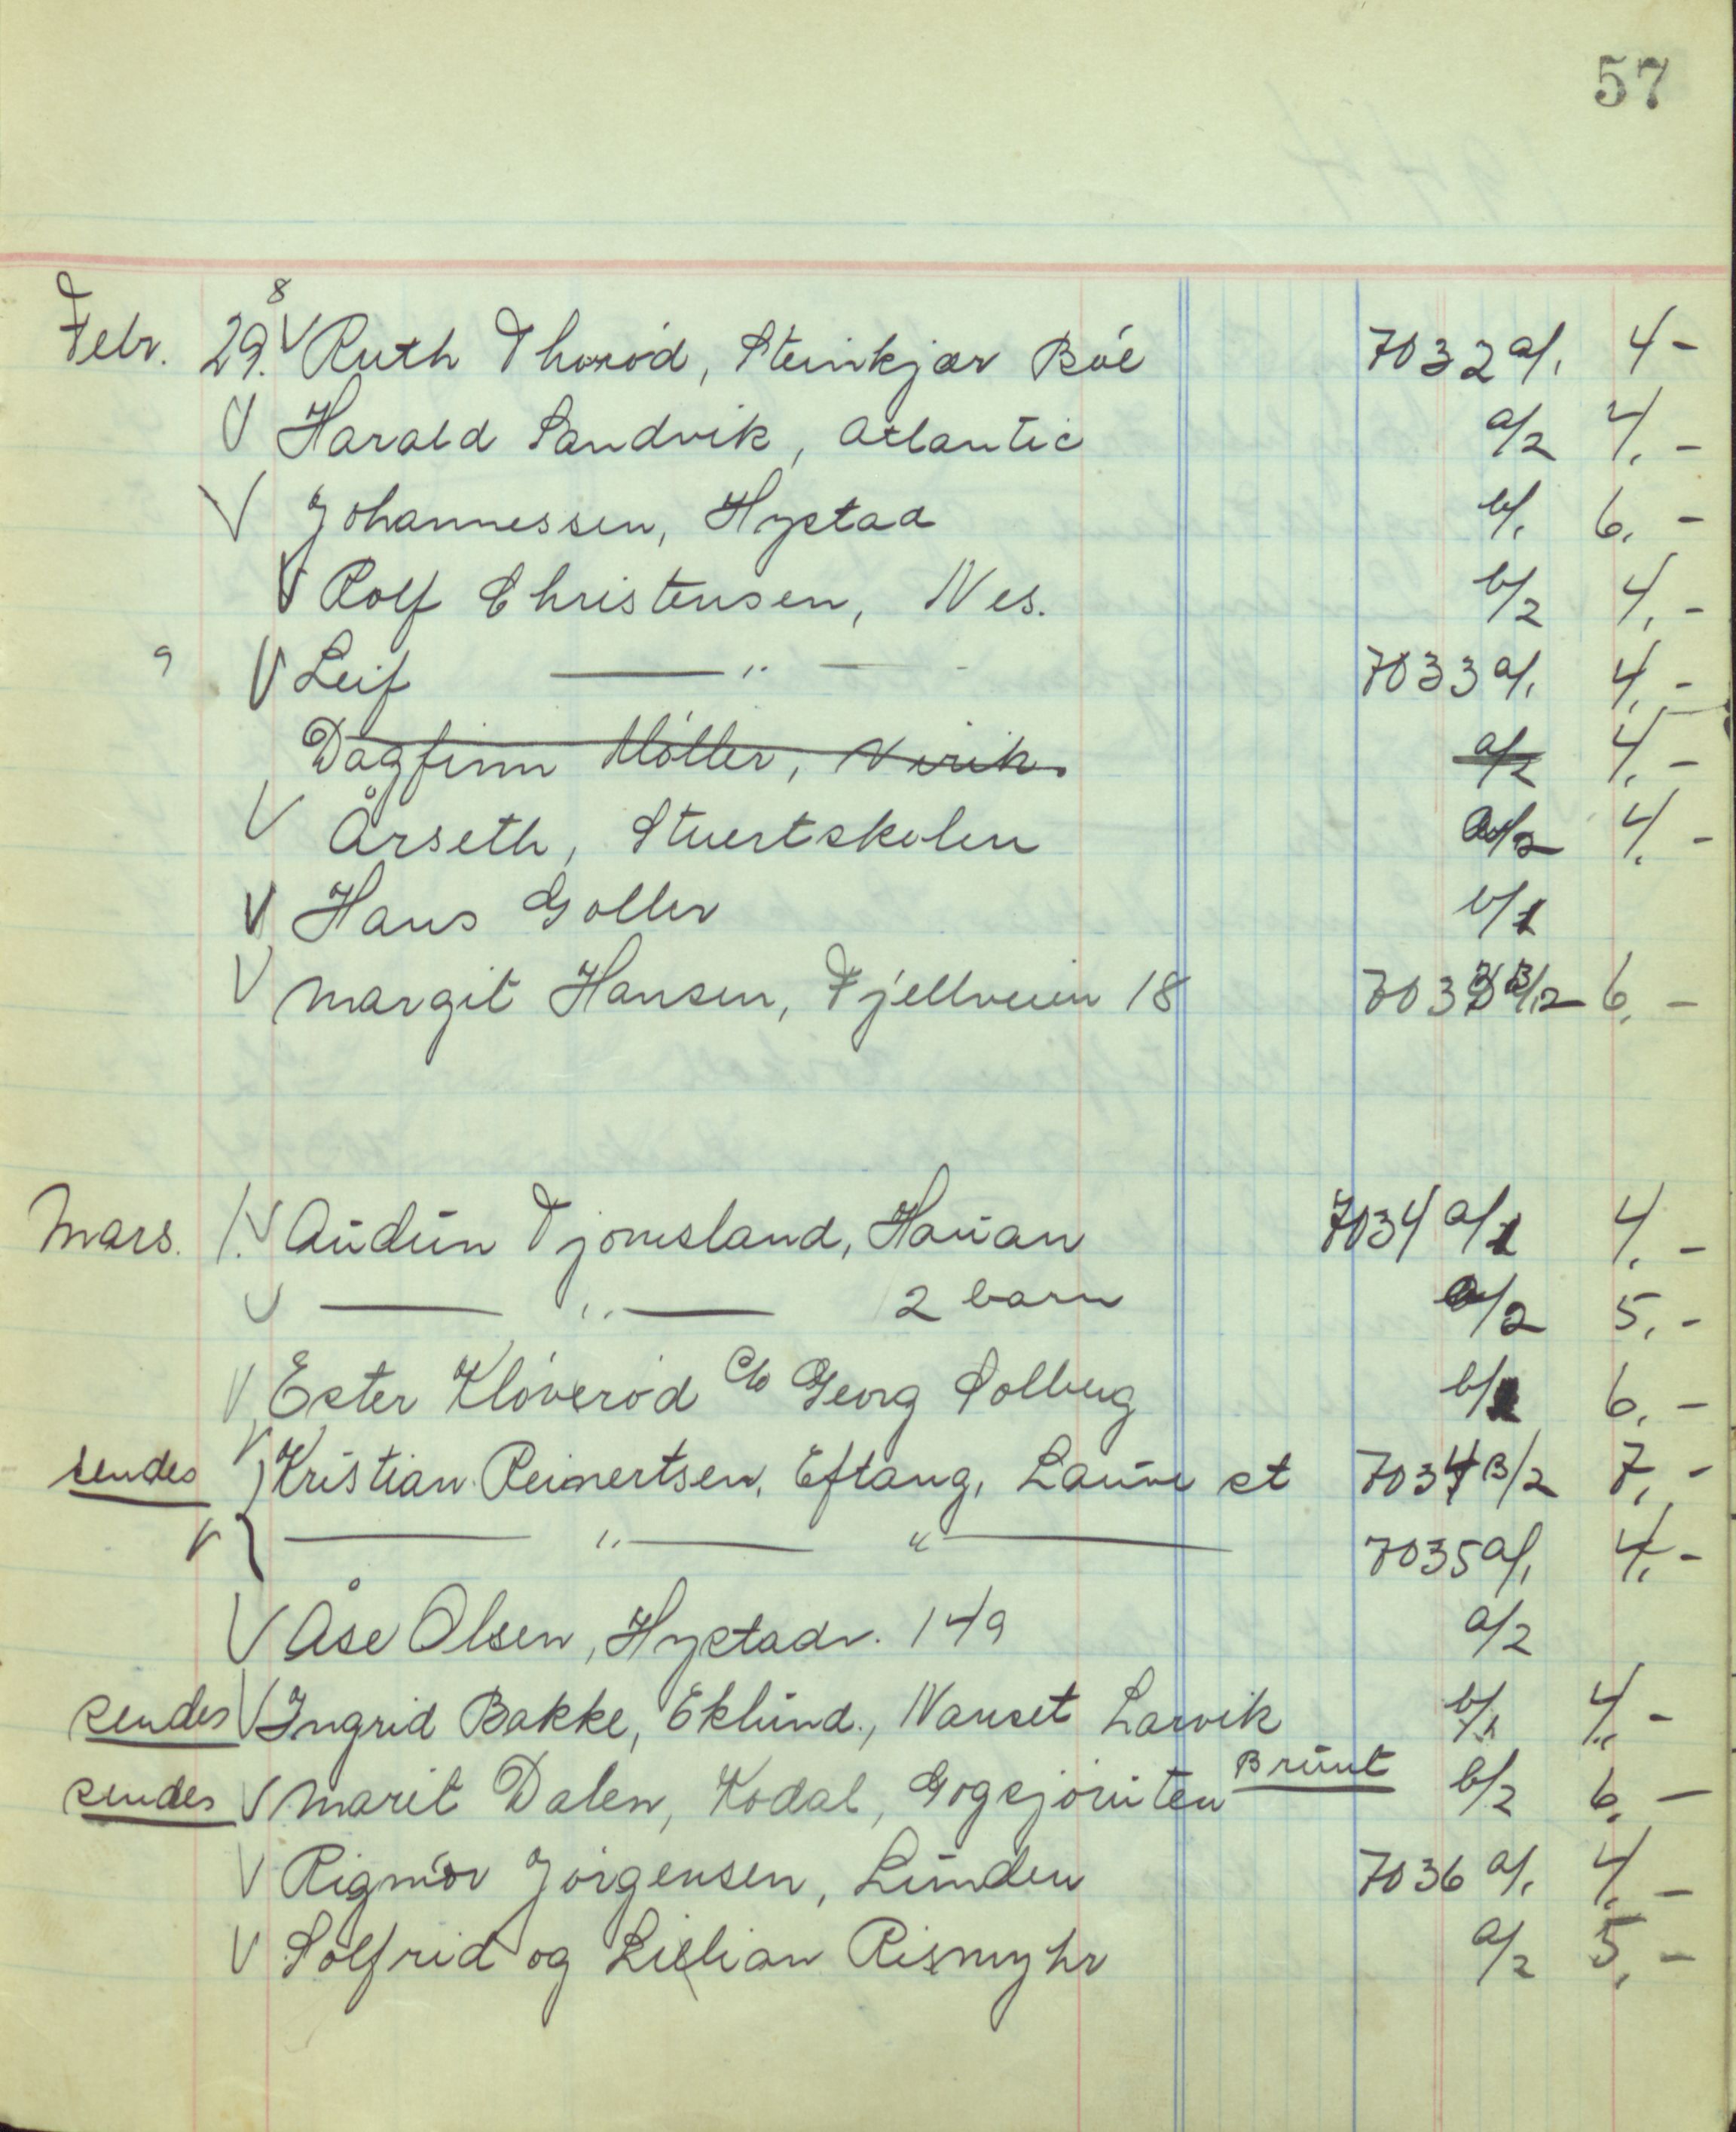 57
8
Febr. 29. V Ruth Thorød, Steinkjær Bøe 7032 a/1 4 -
V Harald Sandvik, Atlantic a/2 4, -
V Johannessen, Hystad b/1 6, -
V Rolf Christensen, Nes. b/2 4, -
9 V Leif — " — 7033 a/1 4, -
Dagfinn Møller, Virik. a/2 4, -
V Årseth, Stuertskolen a/2 4, -
V Hans Goller b/1
V Margit Hansen, Fjellveien 18 7033 B/2 6, -
Mars. 1. V Audun Tjomsland, Hauan 7034 a/1 4, -
V — " — 2 barn a/2 5, -
V Ester Kløverød c/o Georg Solberg b/1 6, -
sendes V Kristian Reinertsen, Eftang, Lauve st 7034 B/2 7, -
V — " — " — 7035 a/1 4, -
V Åse Olsen, Hystadv. 149 a/2
sendes V Ingrid Bakke, Eklund., Nanset Larvik b/1 4, -
sendes V Marit Dalen, Kodal, Gogsjøruten Brunt b/2 6, -
V Rigmor Jørgensen, Lunden 7036 a/1 4, -
V Solfrid og Lillian Rismyhr a/2 5, -